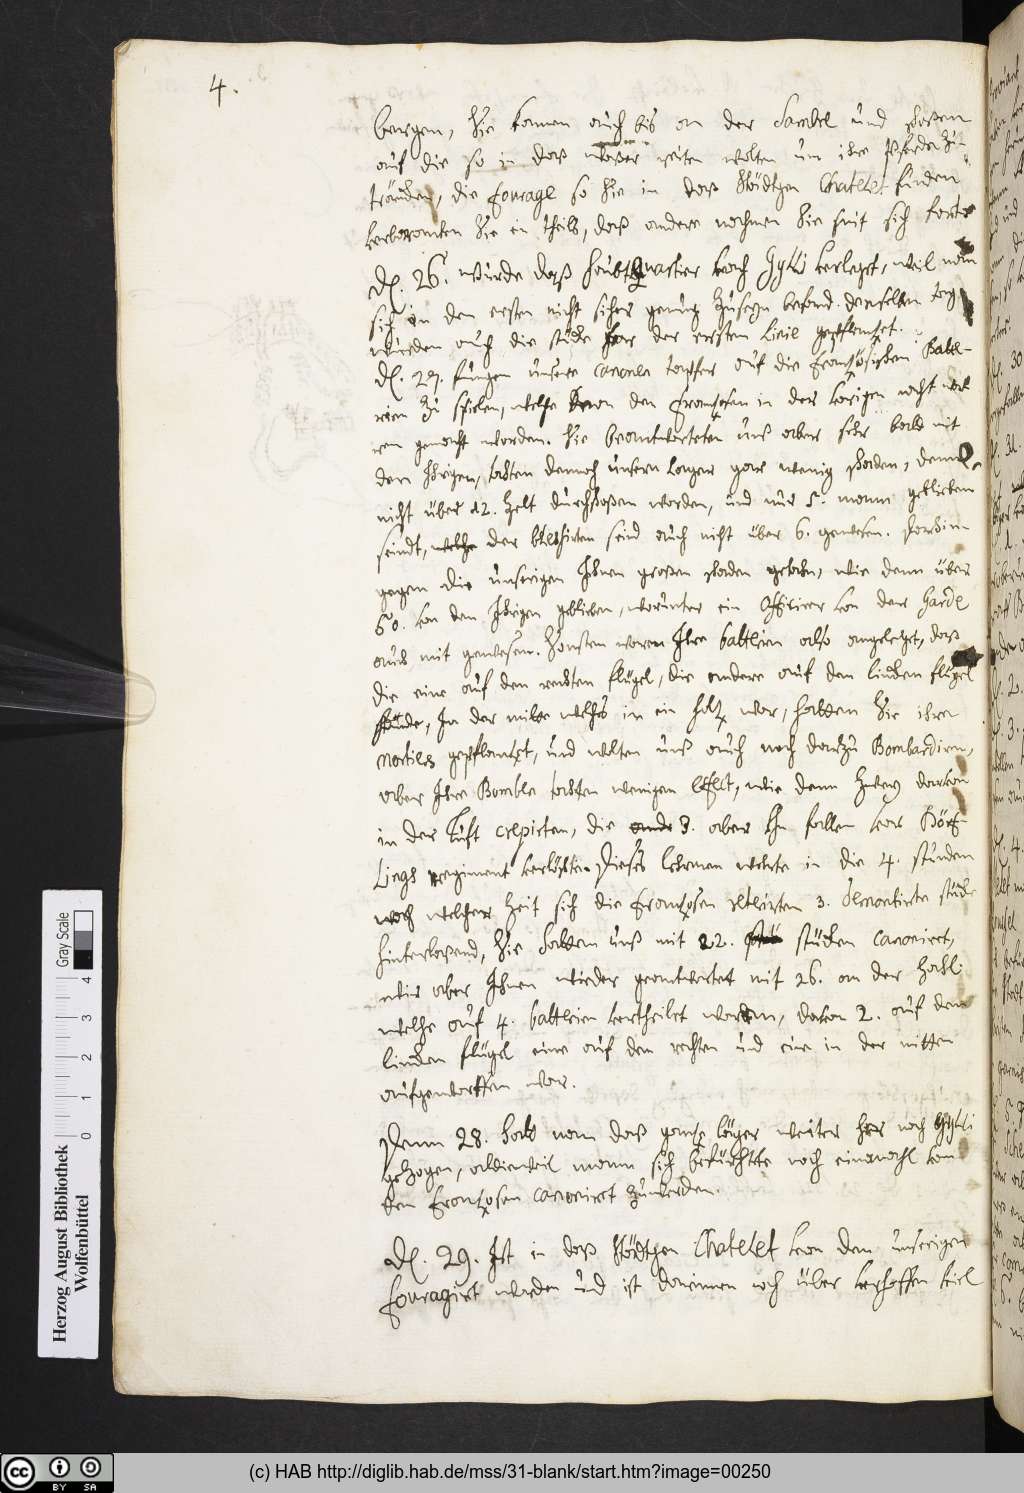 4.
bergen, Sie kamen auch bis an der Sambel und schoßen
auf die so in daß waßer reiten wolten um ihre Pferde zu
träncken, die fourage so Sie in daß Städtgen Chatelet finden
verbranten Sie ein theils, daß andere nahmen Sie mit sich fort
D. 26. wurde daß haubtquartier nach Gylli verleget, weil man
sich in den ersten nicht sicher genug zu seyn befand. denselben tag
wurden auch die stücke vor der ersten Linie gepflantzet.
D. 27. fingen unsere canonen tapfer auf die Frantzösischen Batte-
rien zu spielen, welche von den Frantzosen in der vorigen nacht wa-
ren gemacht worden. Sie beantworteten unß aber sehr bald mit
den Ihrigen, thäten dennoch unsern lager gar wenig schaden, denn
nicht über 12. Zelt durchschoßen worden, und nur 5. mann geblieben
seindt, der blessirten seind auch nicht über 6. gewesen. hin
gegen die unserigen Ihnen großen schaden gethan, wie dann über
60. von den Ihrigen geblieben, worunter ein Officirer von der Garde
auch mit gewesen. Sonsten waren Ihre batterien also angeleget, daß
die eine auf den rechten flügel, die andere auf den lincken flügel
stunde, In der mitte welches in ein holtz war, hatten Sie ihre
mortiers gepflantzet, und wolten unß auch noch darzu Bombardiren,
aber Ihre Bomben thäten wenigen effect, wie dann zwey darvon
in der luft crepirten, die 3. aber im fallen vor
regiment verlöschte. Dieses lehrmen wehrte in die 4. stunden
nach welcher Zeit sich die Frantzosen 3. demontirte stücke
hinterlaßend, Sie hatten unß mit 22. stücken canonirt,
wir aber Ihnen wieder geantwortet mit 26. an der Zahl
welche auf 4. batterien vertheilet worden, davon 2. auf dem
lincken flügel eine auf den rechten und eine in der mitten
aufgeworffen war.
Denn 28. hatt man daß gantze läger weiter her nach Gylli
gezogen, alldieweil mann sich befürchtte noch einmahl von
den Frantzosen canonirt zu werden.
D. 29. Ist in daß Städtgen Chatelet von den unserigen
fouragirt worden und ist darinnen noch über verhoffen viel
Herzog August Bibliothek
Wolfenbüttel
Gray Scale
0 1 2 3 4
BY SA
(c) HAB http://diglib.hab.de/mss/31-blank/start.htm?image=00250